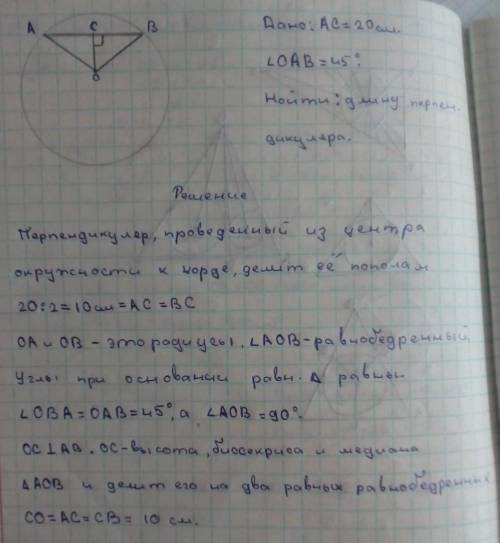 A C B
Дано: AC = 20 см.
O
∠OAB = 45°.
Найти: длину перпен.
дикуляра.
Решение
Перпендикуляр, проведенный из центра
окружности к хорде, делит её пополам
20:2=10см=AC=BC
OA и OB - это радиусы. ∠AOB - равнобедренный
Углы при основании равн. Δ равны
∠OBA=OAB=45°, а ∠AOB=90°.
OC⊥AB. OC-высота, биссектриса и медиана
ΔAOB и делит его на два равных равнобедренных
CO=AC=CB= 10 см.